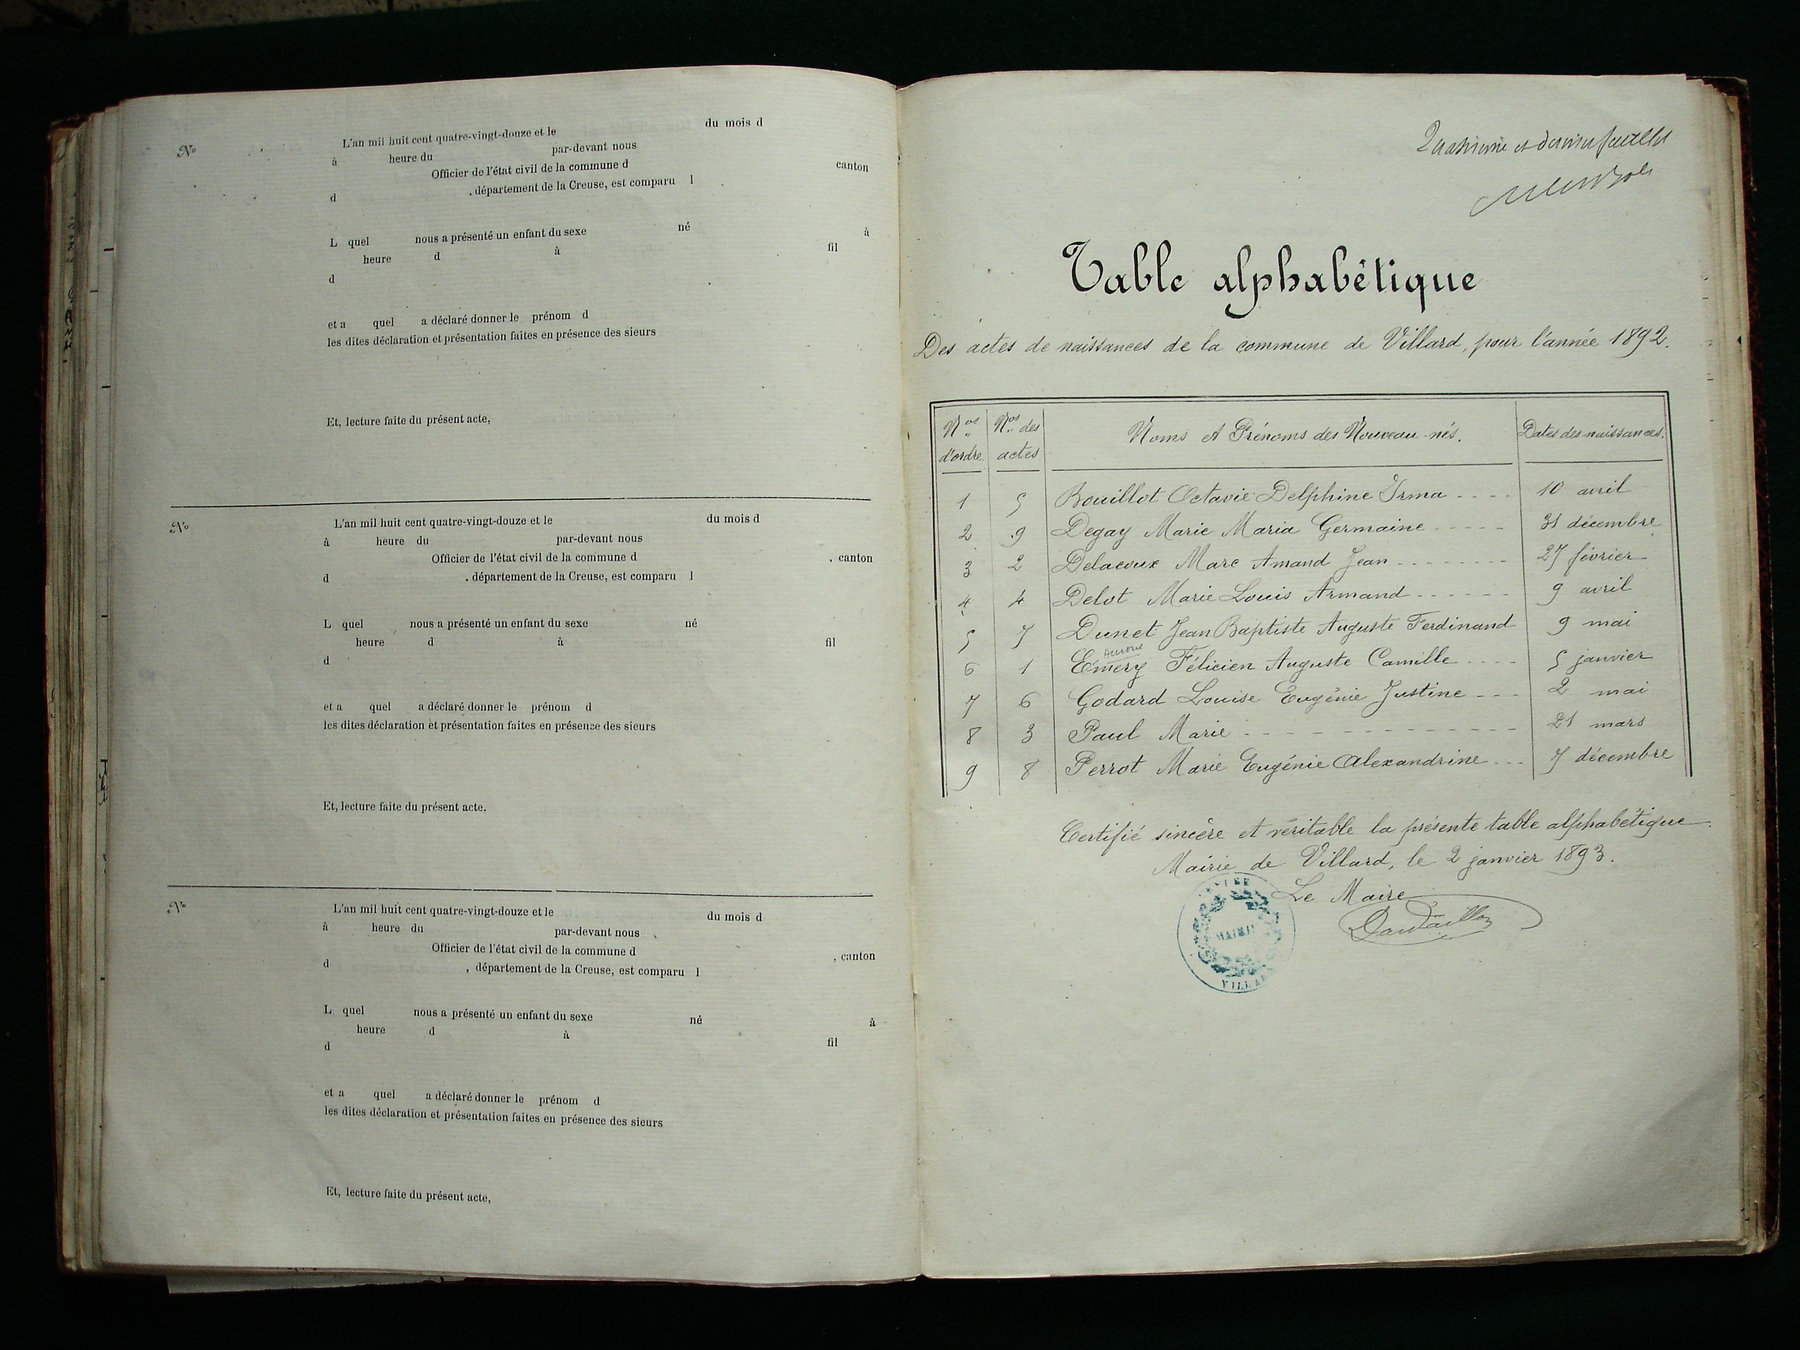 No
L'an mil huit cent quatre-vingt-douze et le du mois d
à heure du par-devant nous
Officier de l'état civil de la commune d canton
d , département de la Creuse, est comparu l
L quel nous a présenté un enfant du sexe né à
heure d à fil
d
et a quel a déclaré donner le prénom d
les dites déclaration et présentation faites en présence des sieurs
Et, lecture faite du présent acte,
No
L'an mil huit cent quatre-vingt-douze et le du mois d
à heure du par-devant nous
Officier de l'état civil de la commune d , canton
d , département de la Creuse, est comparu l
L quel nous a présenté un enfant du sexe né
heure d à fil
d
et a quel a déclaré donner le prénom d
les dites déclaration et présentation faites en présence des sieurs
Et, lecture faite du présent acte.
No
L'an mil huit cent quatre-vingt-douze et le du mois d
à heure du par-devant nous
Officier de l'état civil de la commune d , canton
d , département de la Creuse, est comparu l
L quel nous a présenté un enfant du sexe né à
heure d à fil
d
et a quel a déclaré donner le prénom d
les dites déclaration et présentation faites en présence des sieurs
Et, lecture faite du présent acte,
et dernier feuillet
Table alphabétique
Des actes de naissances de la commune de Villard, pour l'année 1892.
Nos d'ordre Nos des actes Noms et Prénoms des Nouveau-nés. Dates des naissances.
1 5 Bouillot Octavie Delphine Irma 10 avril
2 9 Degay Marie Maria Germaine 31 décembre
3 2 Delacoux Marc Amand Jean 27 février
4 4 Delot Marie Louis Armand 9 avril
5 7 Dunet Jean Baptiste Auguste Ferdinand 9 mai
6 1 Emery Félicien Auguste Camille 5 janvier
7 6 Godard Louise Eugénie Justine 2 mai
8 3 Paul Marie 21 mars
9 8 Perrot Marie Eugénie Alexandrine 7 décembre
Certifié sincère et véritable la présente table alphabétique
Mairie de Villard, le 2 janvier 1893.
Le Maire
MAIRIE